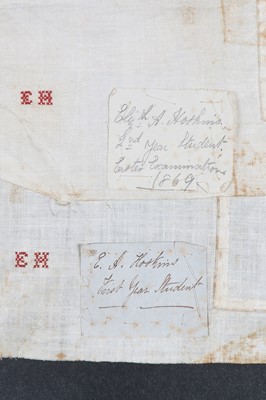 EH
Eliz.th A. Hoskins
2nd Year Student.
Easter Examination
1869
EH
E. A. Hoskins
First Year Student